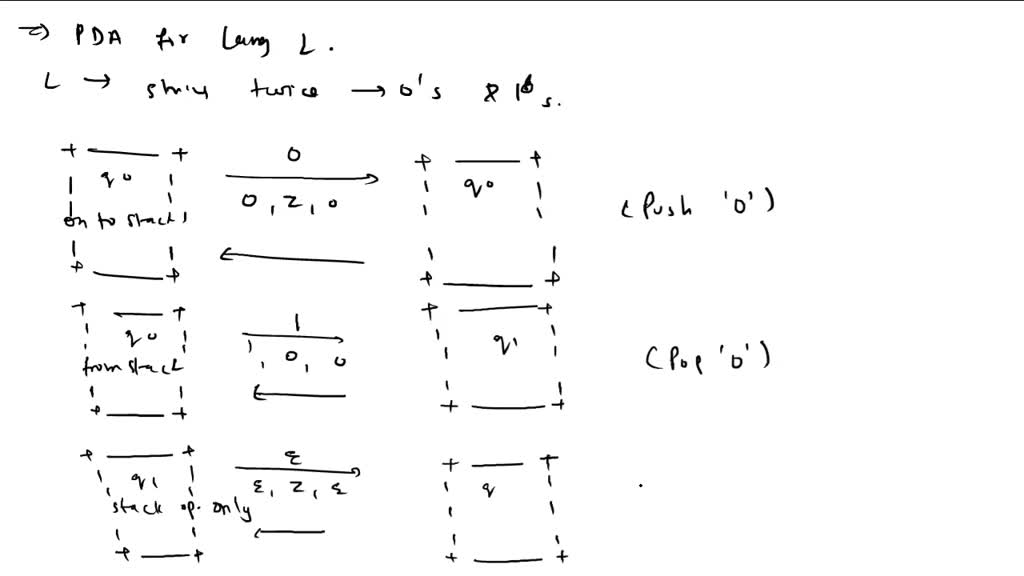 => PDA for Lang L.
L → strings twice → 0's & 1's.
q0 0 q0
on to stack 0, z, 0 (Push '0')
q0 1 q1
from stack 1, 0, 0 (Pop '0')
q1 ε q
stack op. only ε, z, ε